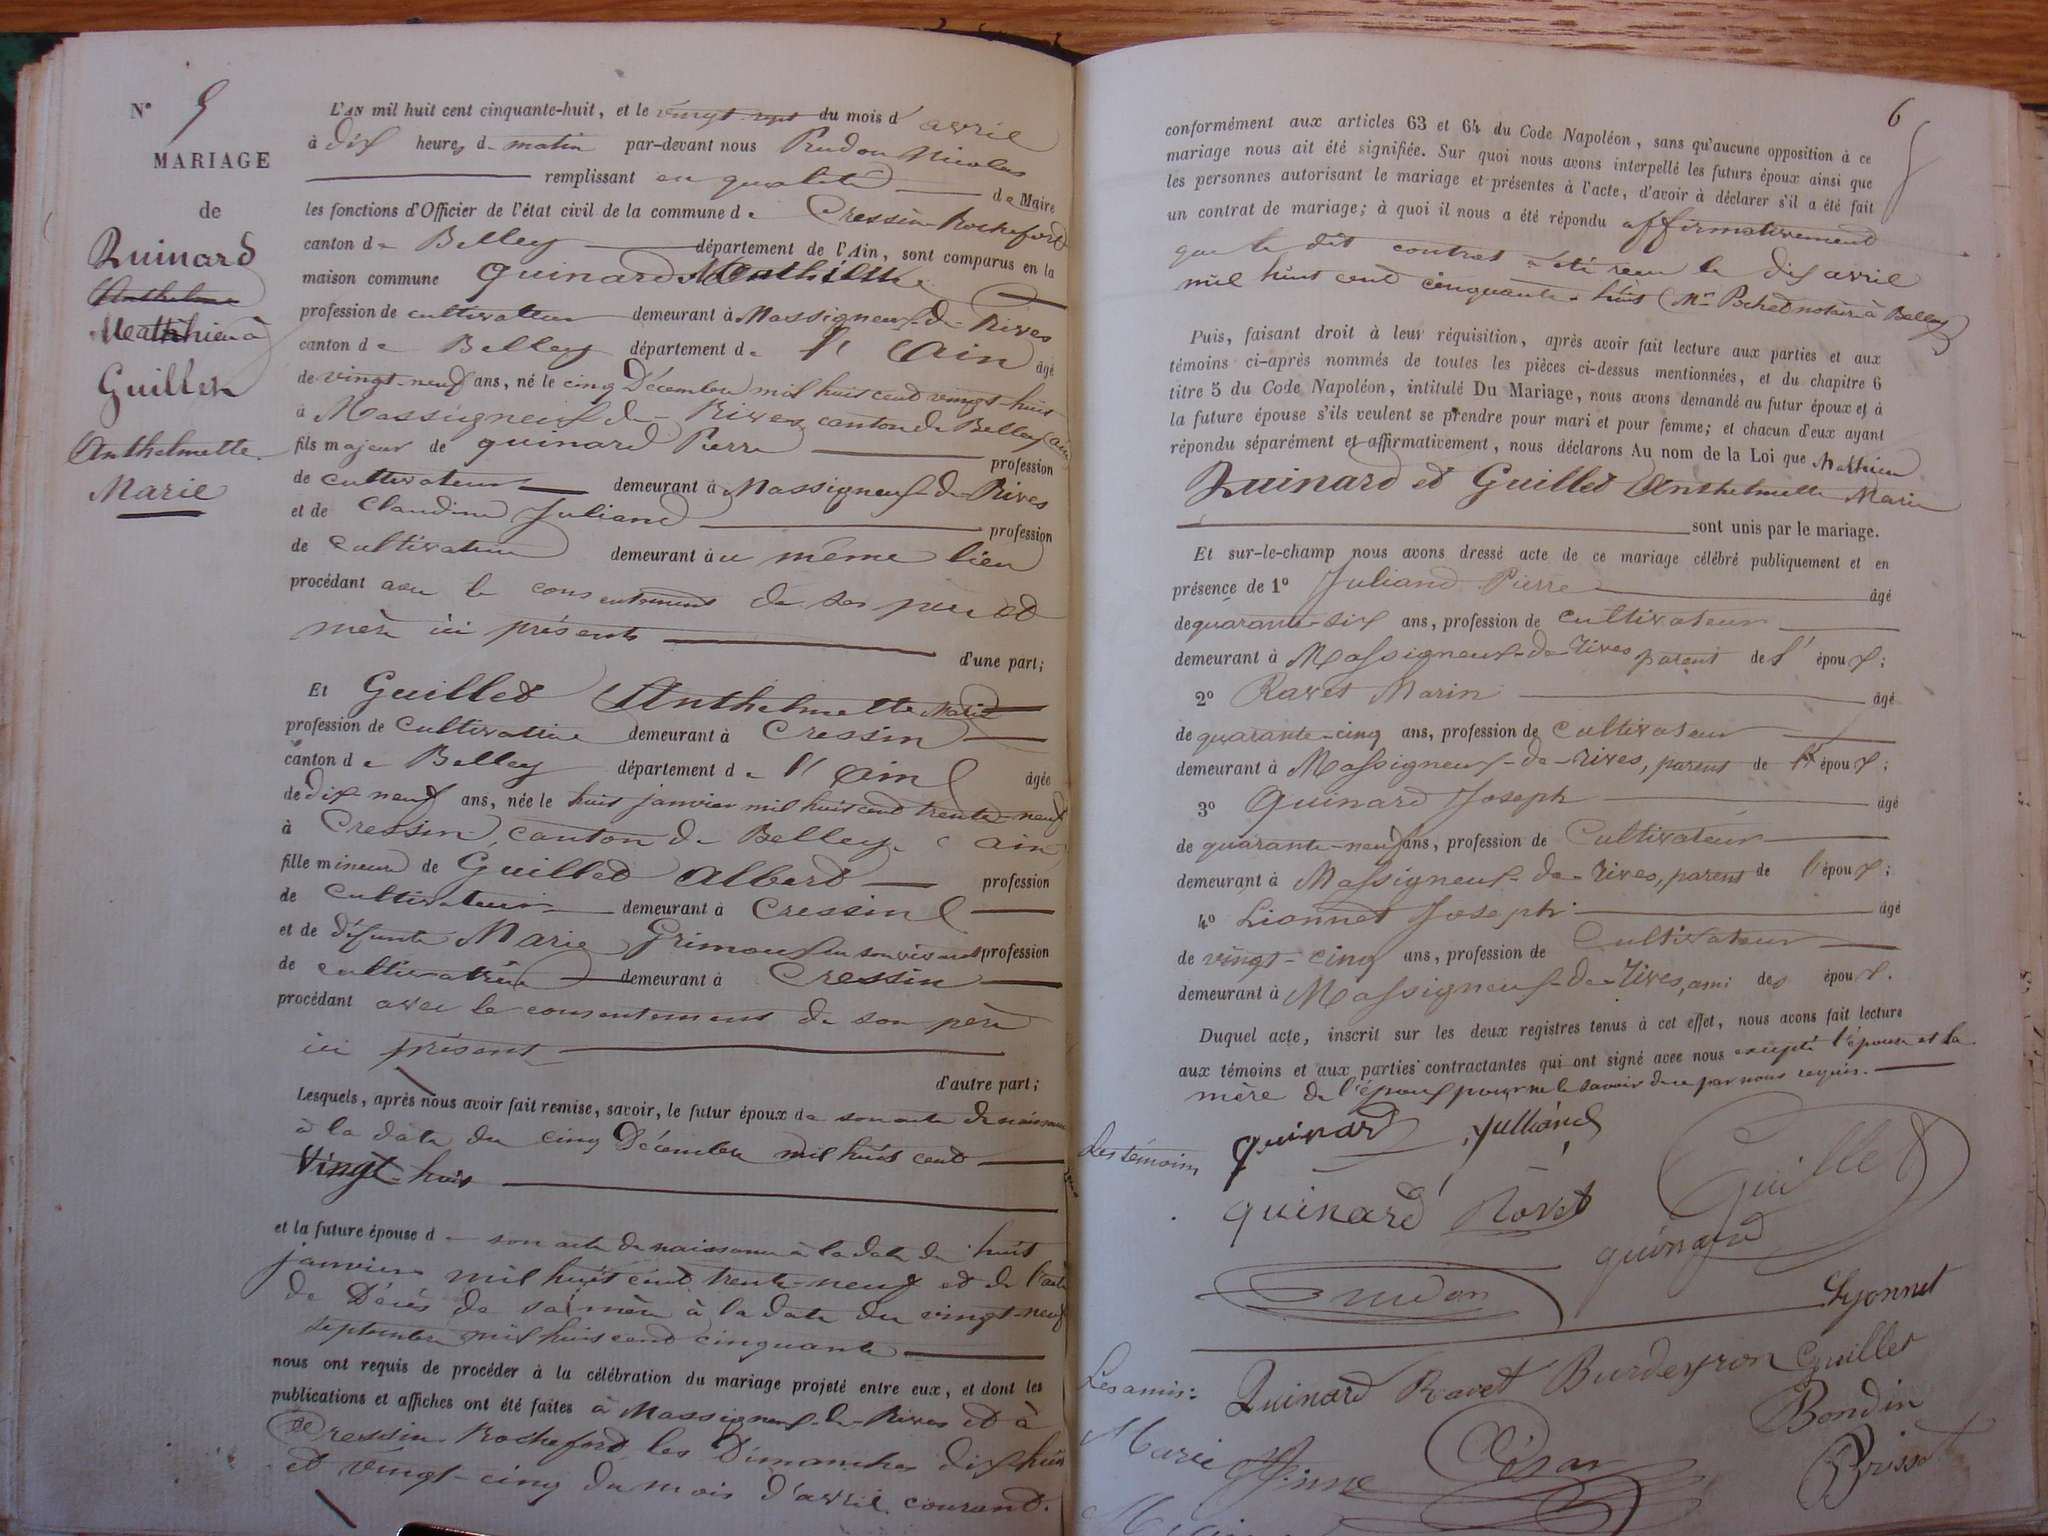 N° 5
MARIAGE
de
Quinard
Anthelme
Matthieu à
Guillet
Anthelmette
Marie
L'AN mil huit cent cinquante-huit, et le vingt-sept du mois d'avril
à dix heures de matin par-devant nous Prudon Nicolas
remplissant en qualité de Maire
les fonctions d'Officier de l'état civil de la commune de Cressin-Rochefort
canton de Belley département de l'Ain, sont comparus en la
maison commune Quinard Mathieu
profession de cultivateur demeurant à Massigneux-de-Rives
canton de Belley département de l'Ain âgé
de vingt-neuf ans, né le cinq Décembre mil huit cent vingt-huit
à Massigneux-de-Rives, canton de Belley (ain)
fils majeur de quinard Pierre profession
de cultivateur demeurant à Massigneux-de-Rives
et de Claudine Juliand profession
de cultivatrice demeurant àu même lieu
procédant avec le consentement de ses père et
mère ici présents d'une part;
Et Guillet Anthelmette Marie
profession de cultivatrice demeurant à Cressin
canton de Belley département de l'ain âgée
de dix neuf ans, née le huit janvier mil huit cent trente-neuf
à Cressin, canton de Belley (ain)
fille mineure de Guillet Albert profession
de cultivateur demeurant à Cressin
et de défunte Marie Grimoux en son vivant profession
de cultivatrice demeurant à Cressin
procédant avec le consentement de son père
ici présent
d'autre part;
Lesquels, après nous avoir fait remise, savoir, le futur époux de son acte de naissance
à la date du cinq Décembre mil huit cent
vingt-huit
et la future épouse d son acte de naissance à la date du huit
janvier mil huit cent trente-neuf et de l'acte
de Décès de sa mère à la date du vingt-neuf
septembre mil huit cent cinquante
nous ont requis de procéder à la célébration du mariage projeté entre eux, et dont les
publications et affiches ont été faites à Massigneux-de-Rives et à
Cressin-Rochefort les Dimanches dix huit
et vingt-cinq du mois d'avril courant.
6
conformément aux articles 63 et 64 du Code Napoléon, sans qu'aucune opposition à ce
mariage nous ait été signifiée. Sur quoi nous avons interpellé les futurs époux ainsi que
les personnes autorisant le mariage et présentes à l'acte, d'avoir à déclarer s'il a été fait
un contrat de mariage; à quoi il nous a été répondu affirmativement
que le dit contrat a été reçu le dix avril
mil huit cent cinquante-huit (Mr notaire à Belley)
Puis, faisant droit à leur réquisition, après avoir fait lecture aux parties et aux
témoins ci-après nommés de toutes les pièces ci-dessus mentionnées, et du chapitre 6
titre 5 du Code Napoléon, intitulé Du Mariage, nous avons demandé au futur époux et à
la future épouse s'ils veulent se prendre pour mari et pour femme; et chacun d'eux ayant
répondu séparément et affirmativement, nous déclarons Au nom de la Loi que Mathieu
Quinard et Guillet Anthelmette Marie
sont unis par le mariage.
Et sur-le-champ nous avons dressé acte de ce mariage célébré publiquement et en
présence de 1° Juliand Pierre âgé
de quarante-six ans, profession de cultivateur
demeurant à Massigneux-de-rives parent de l'époux;
2° Ravet Marin âgé
de quarante-cinq ans, profession de cultivateur
demeurant à Massigneux-de-rives, parent de l'époux;
3° Quinard Joseph âgé
de quarante-neuf ans, profession de Cultivateur
demeurant à Massigneux-de-rives, parent de l'époux;
4° Lionnet Joseph âgé
de vingt-cinq ans, profession de Cultivateur
demeurant à Massigneux-de-rives, ami des époux.
Duquel acte, inscrit sur les deux registres tenus à cet effet, nous avons fait lecture
aux témoins et aux parties contractantes qui ont signé avec nous excepté l'épouse et la
mère de l'époux pour ne le savoir de ce par nous requis.
Les témoins quinard Julliand
Guillet
quinard Ravet
quinard
Prudon
Lyonnet
Les amis: Quinard Ravet Burdeyron Guillet
Bondin
Marie César
Brisset